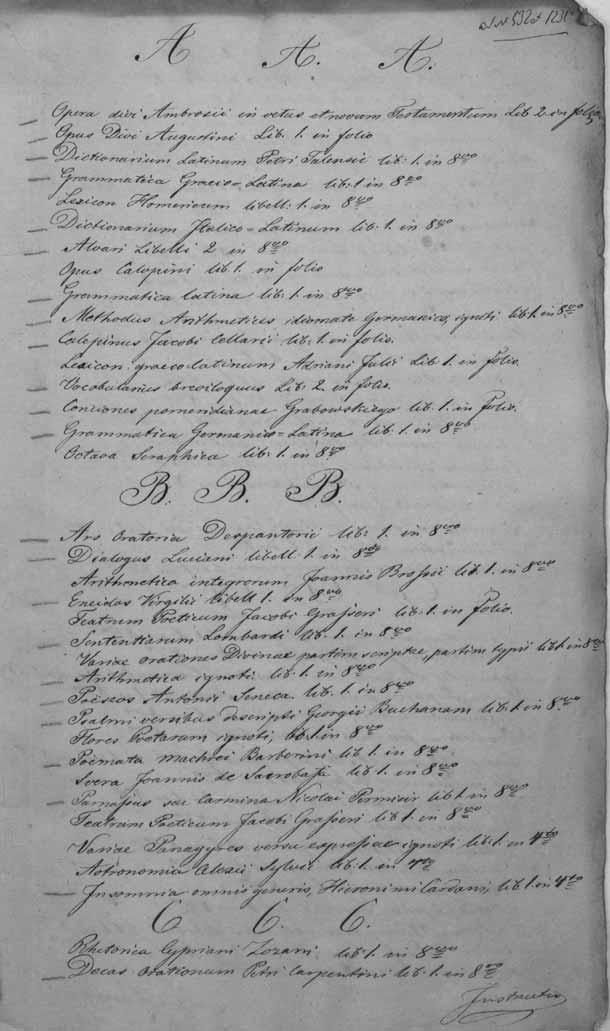 A A. A.
Opera divi Ambrosii in vetus et novum Testamentum Lib 2 in folio.
Opus Divi Augustini Lib. 1. in folio
Dictionarium Latinum Petri lib: 1. in 8vo
Grammatica Graeco=Latina lib: 1 in 8vo
Lexicon Homericum libell: 1. in 8vo
Dictionarium Italico=Latinum lib: 1. in 8vo
Alvari Libelli 2 in 8vo
Opus Calepini lib 1. in folio
Grammatica latina lib: 1. in 8vo
Methodus Arithmetices idiomate Germanico, ignoti lib 1. in 8vo
Calepinus Jacobi Cellarii lib: 1. in folio.
Lexicon graeco latinum Adriani Julii Lib. 1. in folio.
Vocabularius breviloquus Lib: 2. in folio.
Conciones pomeridianae Grabowskiego lib. 1. in Folio.
Grammatica Germanico=Latina lib: 1. in 8vo
Octava Seraphica lib: 1. in 8vo
B. B. B.
Ars Oratoria Despantorii lib: 1. in 8vo
Dialogus Luciani libell: 1. in 8vo
Arithmetica integrorum Joannis Broscii lib. 1. in 8vo
Eneidos Virgilii libell 1. in 8vo
Teatrum Poeticum Jacobi Grasseri lib: 1. in Folio.
Sententiarum Lombardi lib. 1. in 8vo
Variae orationes Divinae partim scriptae, partim typis lib 1 in 8vo
Arithmetica ignoti lib: 1. in 8vo
Antonii Seneca lib: 1. in 8vo
Psalmi versibus descripti Georgii Buchanam lib 1. in 8vo
Flores Poetarum ignoti, lib. 1. in 8vo
Poëmata Barberini lib 1. in 8vo.
Svera Joannis de Sacrobasto lib 1. in 8vo
Parnassus sac Carmina Nicolai lib 1 in 8vo
Teatrum Poeticum Jacobi Grasseri lib 1. in 8vo
Variae Panagyres versu expressae ignoti lib: 1. in 4to
Astronomia Alexii Sylvii lib: 1. in 4to
Insomnia omnis generis, Hieronimi Cardani, lib 1. in 4to
C C. C.
Rhetorica Cypriani lib: 1. in 8vo
Decas Orationum Petri Carpentini lib: 1. in 8vo